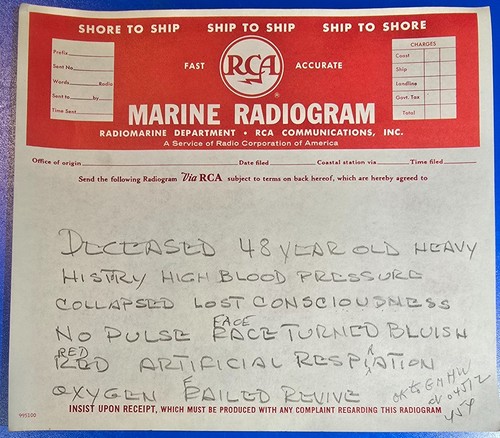 SHORE TO SHIP SHIP TO SHIP SHIP TO SHORE
Prefix
Sent No.
Words Radio
Sent to by
Time Sent
FAST RCA ACCURATE
CHARGES
Coast
Ship
Landline
Govt. Tax
Total
MARINE RADIOGRAM
RADIOMARINE DEPARTMENT • RCA COMMUNICATIONS, INC.
A Service of Radio Corporation of America
Office of origin Date filed Coastal station via Time filed
Send the following Radiogram Via RCA subject to terms on back hereof, which are hereby agreed to
DECEASED 48 YEAR OLD HEAVY
HISTRY HIGH BLOOD PRESSURE
COLLAPSED LOST CONSCIOUSNESS
FACE
NO PULSE FACE TURNED BLUISH
RED
RED ARTIFICIAL RESPIRATION
OXYGEN FAILED REVIVE
INSIST UPON RECEIPT, WHICH MUST BE PRODUCED WITH ANY COMPLAINT REGARDING THIS RADIOGRAM